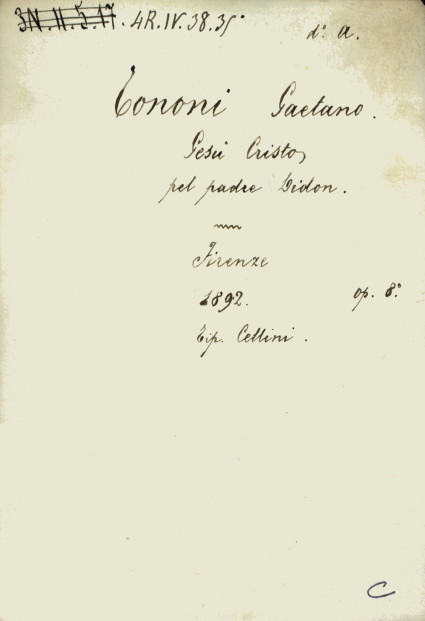 3N.II.5.17. 4R.IV.38.35°
d° a.
Tononi Gaetano.
Gesù Cristo,
pel padre Didon.
Firenze
1892. op. 8°
Tip. Cellini.
C